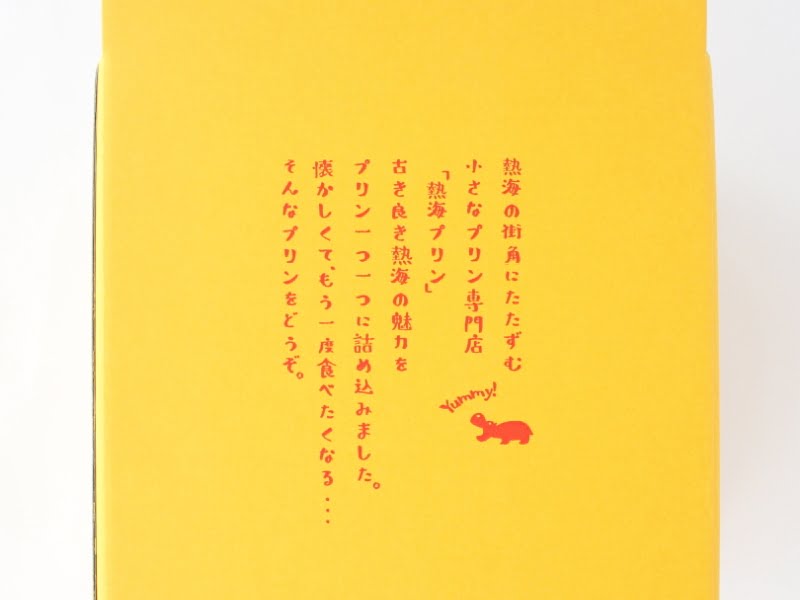 熱海の街角にたたずむ
小さなプリン専門店
「熱海プリン」
古き良き熱海の魅力を
プリン一つ一つに詰め込みました。
懐かしくて、もう一度食べたくなる・・・
そんなプリンをどうぞ。
Yummy!